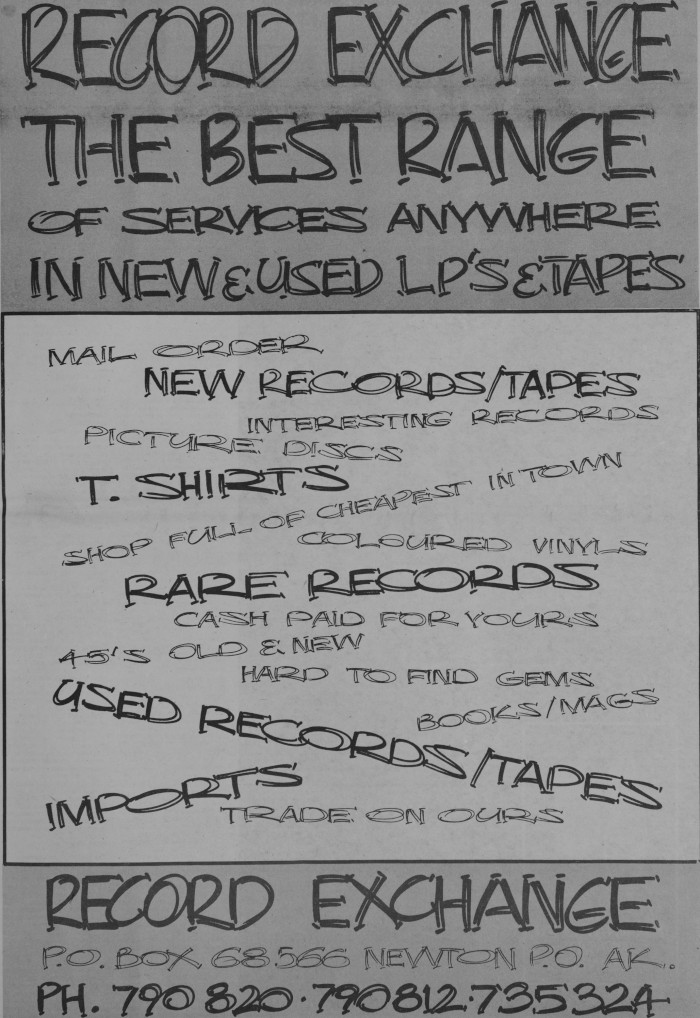 RECORD EXCHANGE
THE BEST RANGE
OF SERVICES ANYWHERE
IN NEW & USED LP'S & TAPES
MAIL ORDER
NEW RECORDS/TAPES
INTERESTING RECORDS
PICTURE DISCS
T. SHIRTS
SHOP FULL OF CHEAPEST IN TOWN
COLOURED VINYLS
RARE RECORDS
CASH PAID FOR YOURS
45'S OLD & NEW
HARD TO FIND GEMS
USED RECORDS/TAPES
BOOKS/MAGS
IMPORTS
TRADE ON OURS
RECORD EXCHANGE
P.O. BOX 68566 NEWTON P.O. AK.
PH. 790 820 · 790812 · 735324